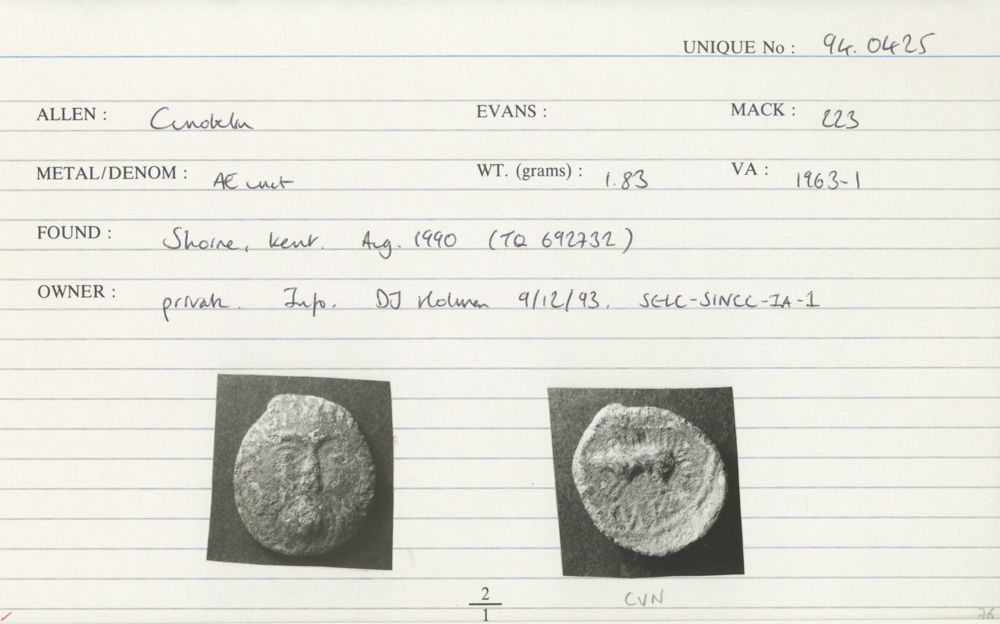 UNIQUE No : 94.0425
ALLEN : Cunobelin EVANS : MACK : 223
METAL/DENOM : AE unit WT. (grams) : 1.83 VA : 1963-1
FOUND : Shorne, Kent. Aug. 1990 (TQ 692732)
OWNER : private. Info. DJ Holman 9/12/93. SELC-SINCC-IA-1
2
1
CVN
76